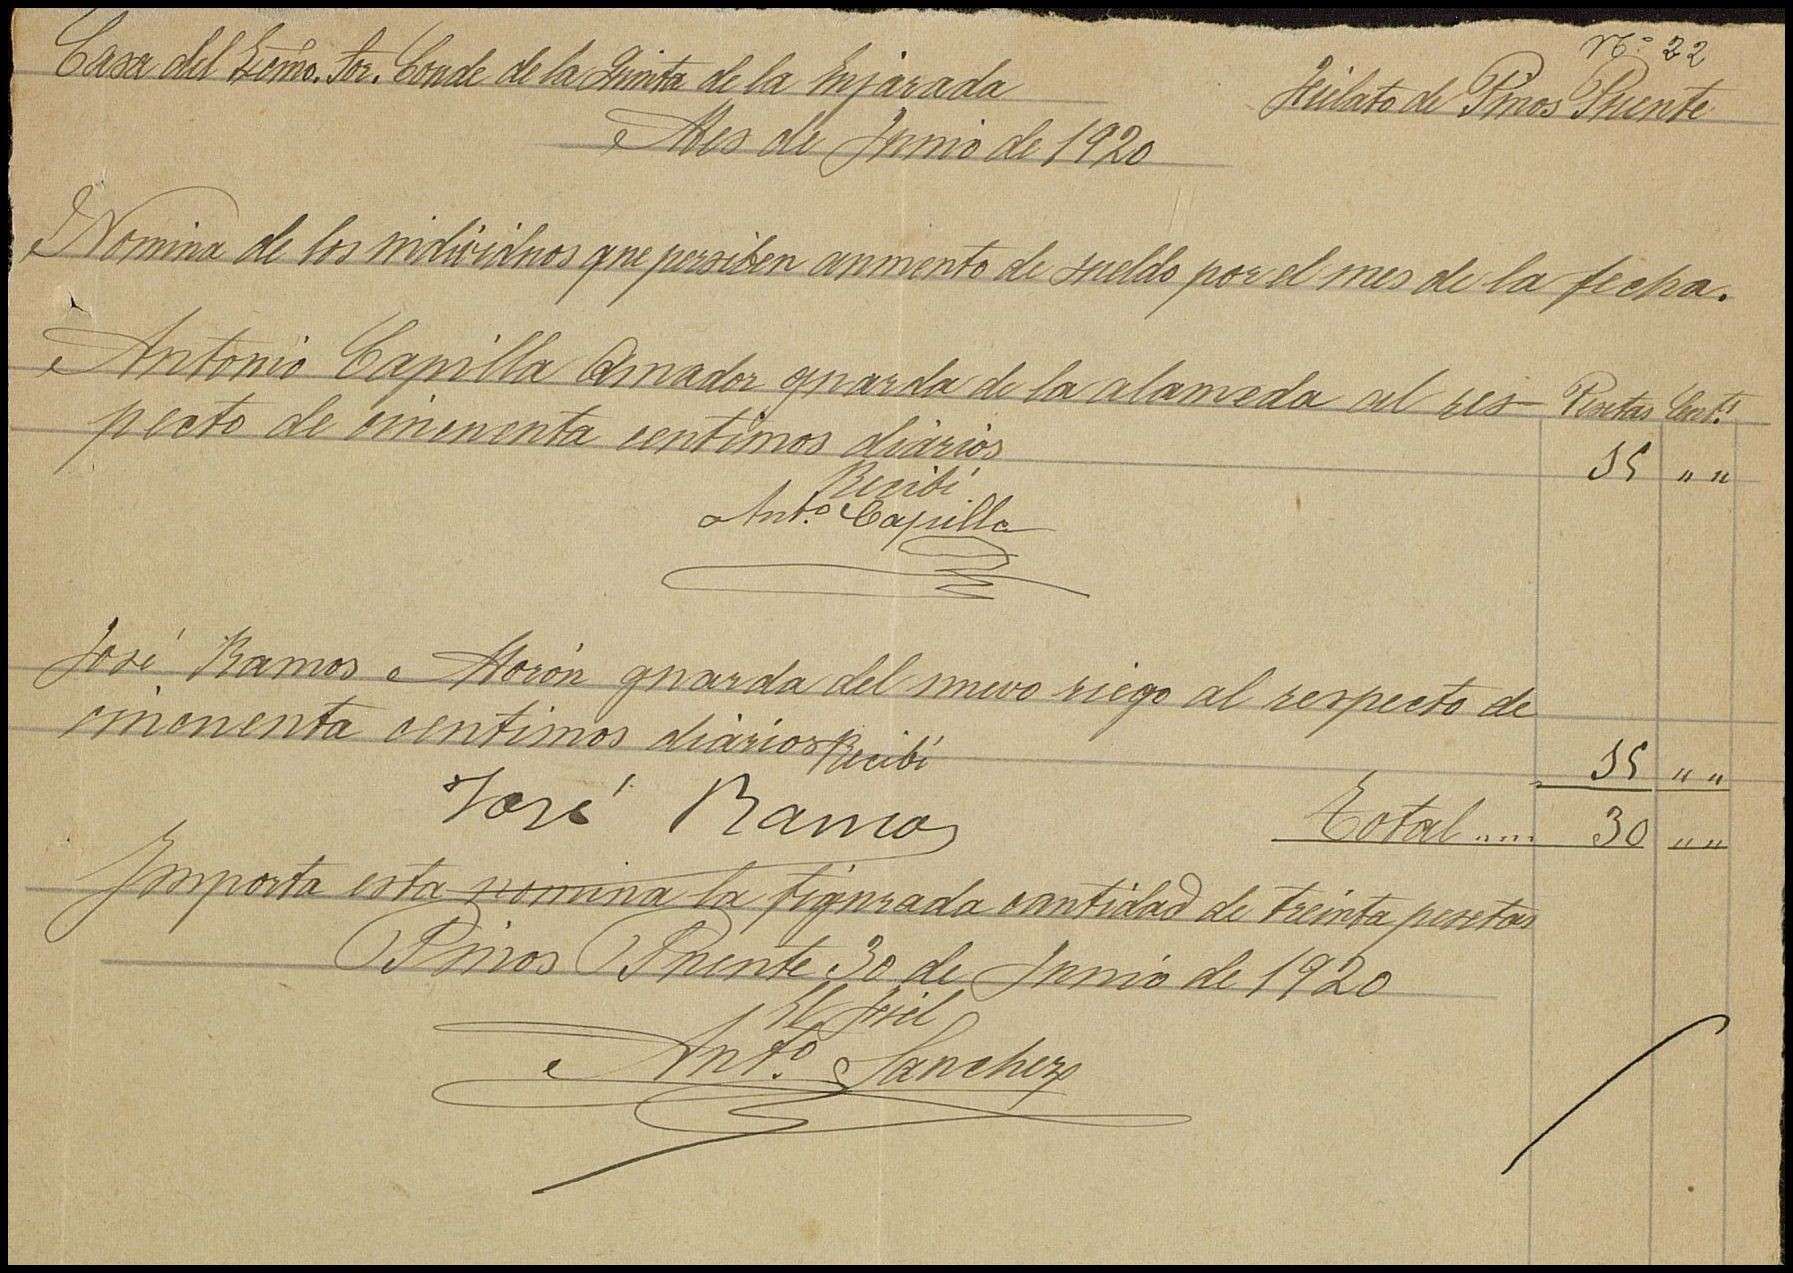 Nº 22
Casa del Exmo. Sor. Conde de la Quinta de la Enjarada
Fielato de Pinos Puente
Mes de Junio de 1920
Nomina de los individuos que persiben aumento de sueldo por el mes de la fecha.
Antonio Capilla Amador guarda de la alameda al res-
Pesetas Cent.s
pecto de cincuenta centimos diarios
15 " "
Recibí
Ant.º Capilla
José Ramos Morón guarda del nuevo riego al respecto de
cincuenta centimos diarios Recibí
15 " "
José Ramos
Total..... 30 " "
Importa esta nomina la figurada cantidad de treinta pesetas
Pinos Puente 30 de Junio de 1920
El Fiel
Ant.º Sanchez